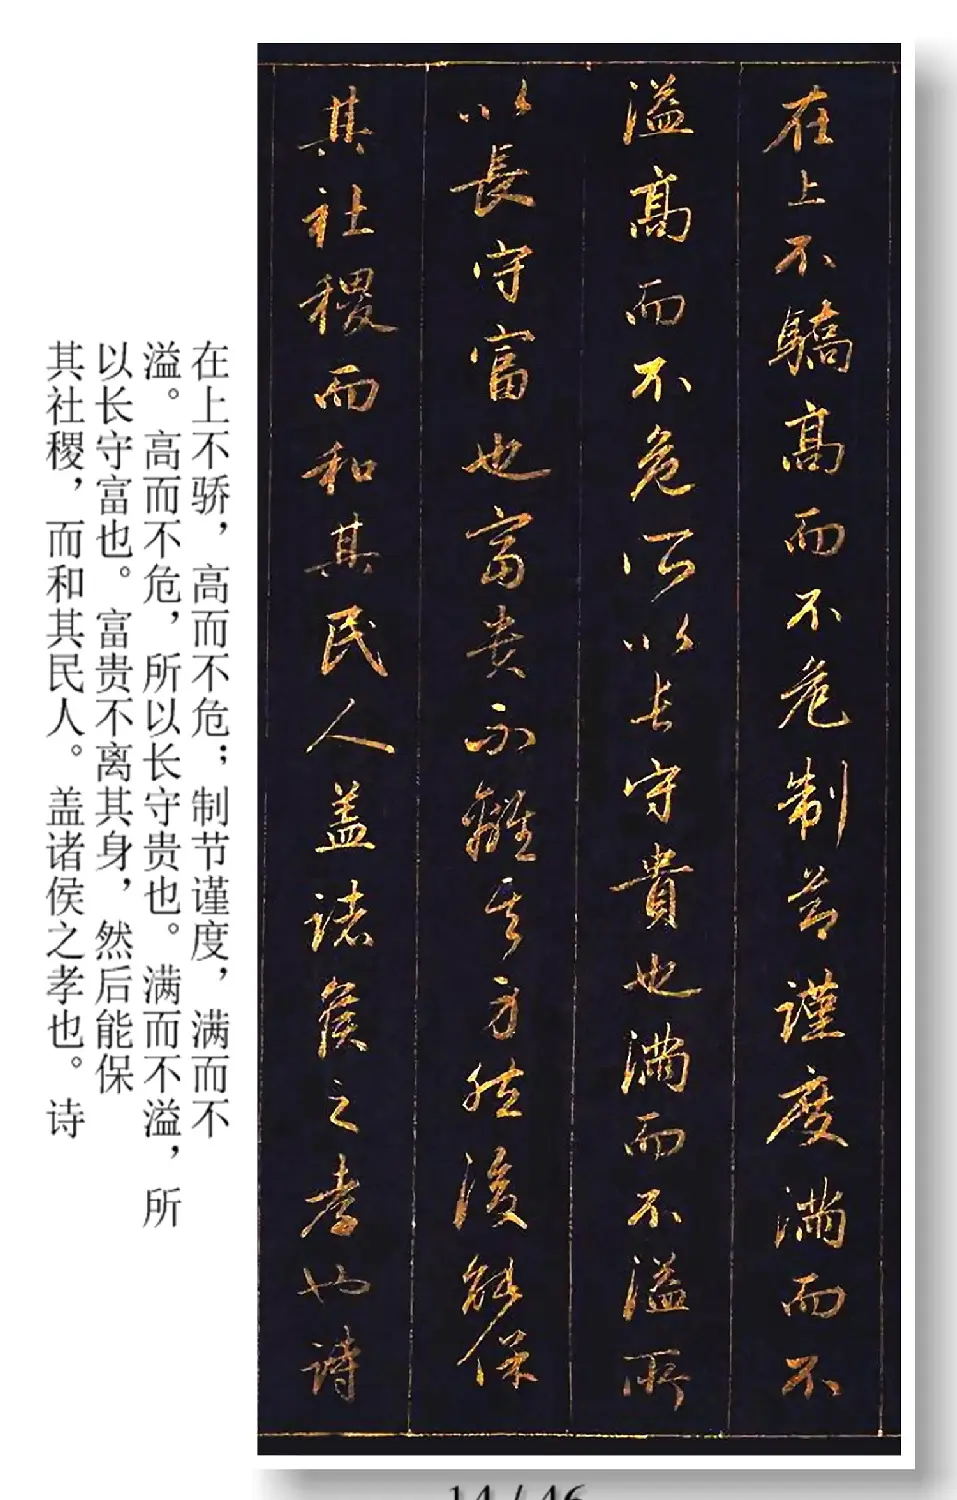 在上不驕高而不危制莭謹度滿而不
溢高而不危所以長守貴也滿而不溢所
以長守富也富貴不離其身然後能保
其社稷而和其民人盖諸侯之孝也詩
在上不骄，高而不危；制节谨度，满而不
溢。高而不危，所以长守贵也。满而不溢，所
以长守富也。富贵不离其身，然后能保
其社稷，而和其民人。盖诸侯之孝也。诗
14 / 46